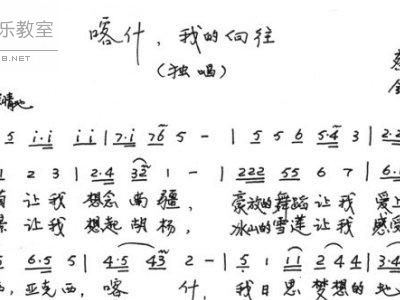 乐教室
B.NET
喀什，我的向往
（独唱）
情地
5 i·i i i | 7·i 7 6 5 - | 5 5 6 5·4 3 | 2·2
1 2 3 | 2·4 3 2 1 - | 222 55 6 7 | 6·
让我 想念南疆， 家族的舞蹈让我 爱上
景 让我 想起胡杨， 冰山的雪莲让我 感受
5 6·5 5 | 4·5 4 3 2 - | 5 1 1 1 2 4 4 | 3·4
亚克西，喀 什， 我日思梦想的地